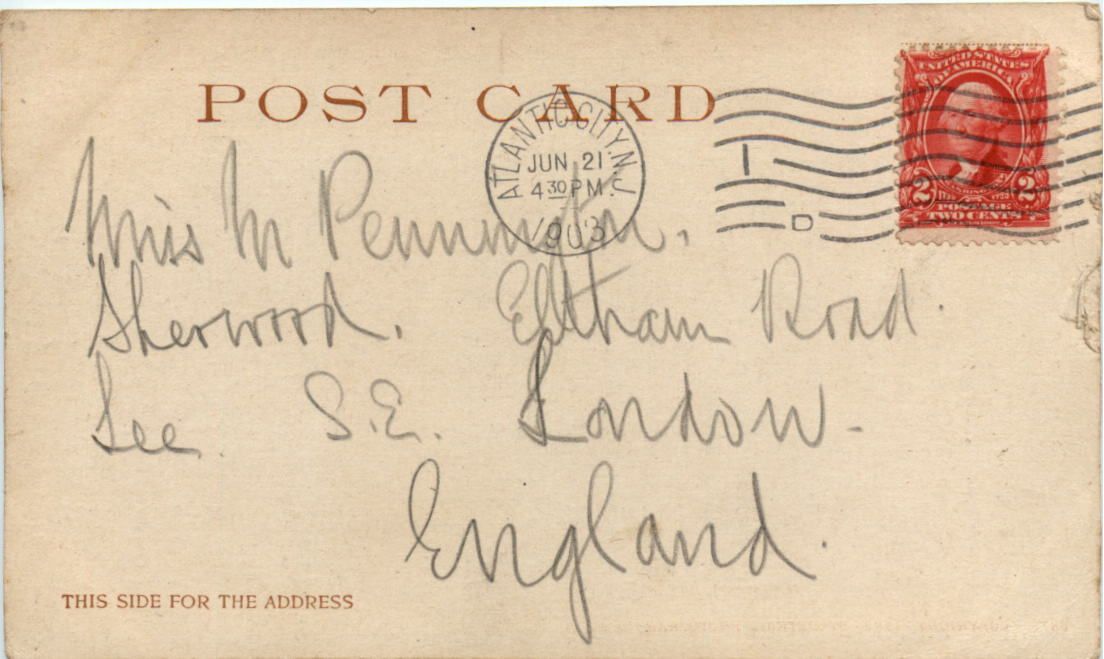 POST CARD
ATLANTIC CITY, N.J.
JUN 21
4 30 PM
1903
1
D
UNITED STATES
OF AMERICA
2 2
POSTAGE
TWO CENTS
Miss M Pennington.
Sherwood. Eltham Road.
Lee S.E. London.
England.
THIS SIDE FOR THE ADDRESS